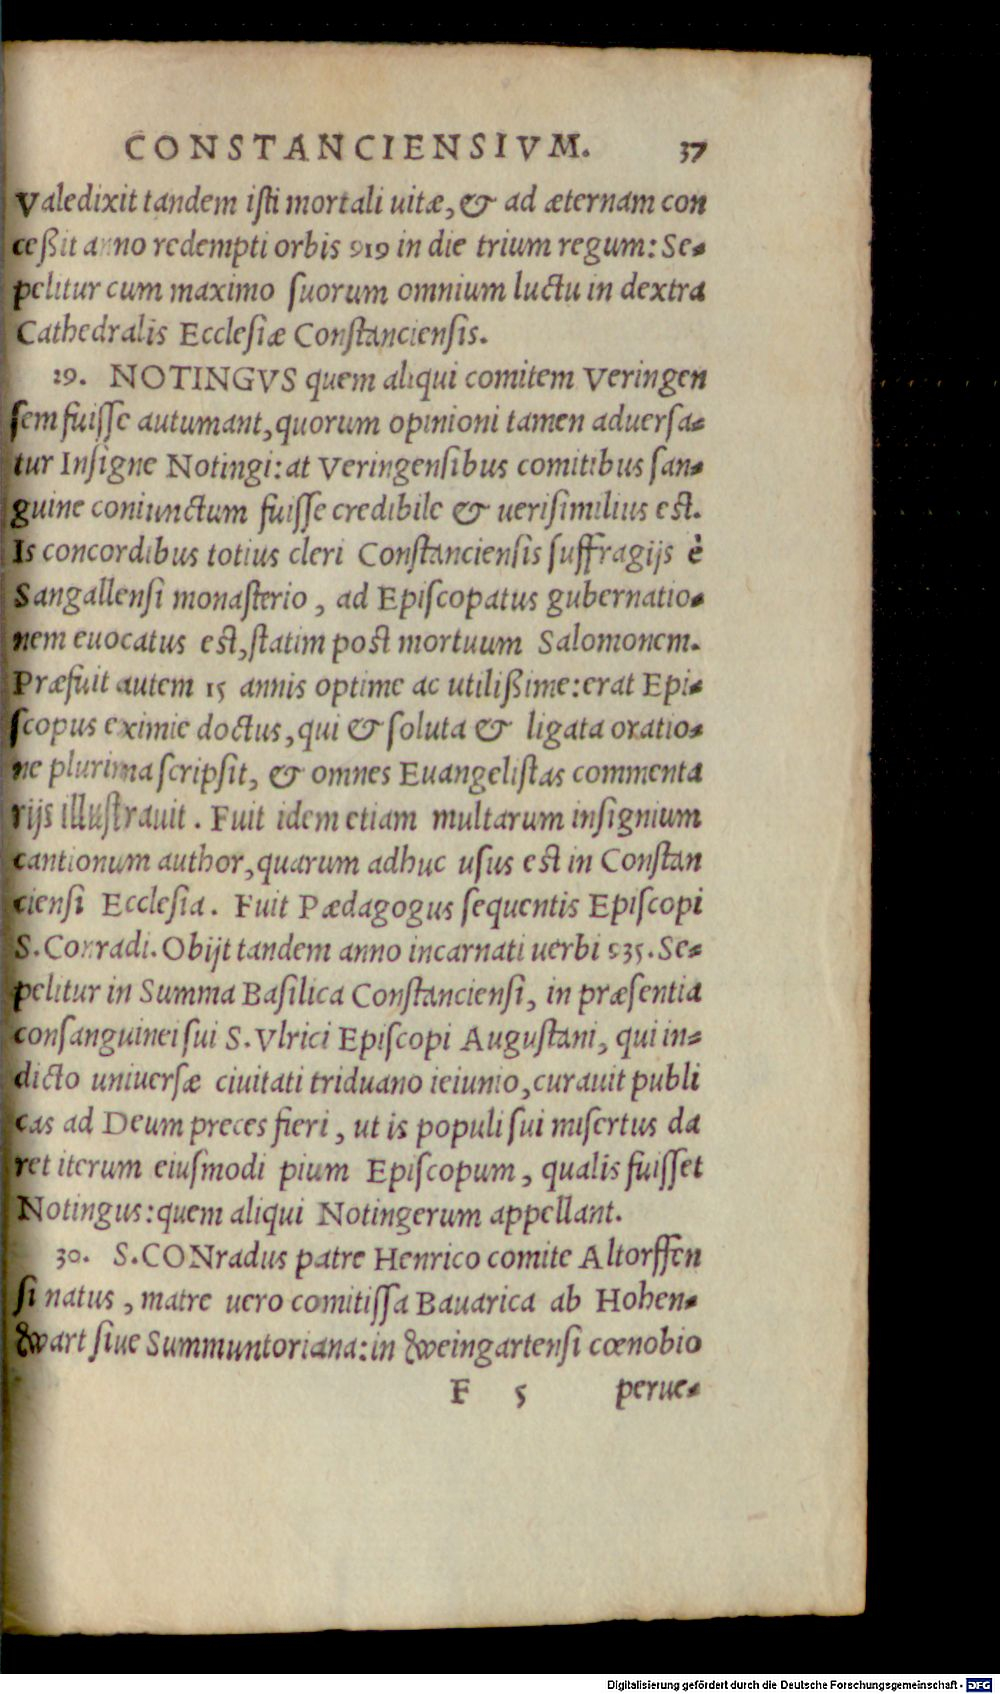 CONSTANCIENSIVM. 37
Valedixit tandem isti mortali uitæ, & ad æternam con
ceßit anno redempti orbis 919 in die trium regum: Se-
pelitur cum maximo suorum omnium luctu in dextra
Cathedralis Ecclesiæ Constanciensis.
29. NOTINGVS quem aliqui comitem Veringen
sem fuisse autumant, quorum opinioni tamen aduersa-
tur Insigne Notingi: at Veringensibus comitibus san-
guine coniunctum fuisse credibile & uerisimilius est.
Is concordibus totius cleri Constanciensis suffragijs è
Sangallensi monasterio, ad Episcopatus gubernatio-
nem euocatus est, statim post mortuum Salomonem.
Præfuit autem 15 annis optime ac utilißime: erat Epi-
scopus eximie doctus, qui & soluta & ligata oratio-
ne plurima scripsit, & omnes Euangelistas commenta
rijs illustrauit. Fuit idem etiam multarum insignium
cantionum author, quarum adhuc usus est in Constan
ciensi Ecclesia. Fuit Pædagogus sequentis Episcopi
S. Conradi. Obijt tandem anno incarnati uerbi 935. Se-
pelitur in Summa Basilica Constanciensi, in præsentia
consanguinei sui S. Vlrici Episcopi Augustani, qui in-
dicto uniuersæ ciuitati triduano ieiunio, curauit publi
cas ad Deum preces fieri, ut is populi sui misertus da
ret iterum eiusmodi pium Episcopum, qualis fuisset
Notingus: quem aliqui Notingerum appellant.
30. S. CONradus patre Henrico comite Altorffen
si natus, matre uero comitissa Bauarica ab Hohen-
wart siue Summuntoriana: in weingartensi cœnobio
F 5 perue-
Digitalisierung gefördert durch die Deutsche Forschungsgemeinschaft - DFG